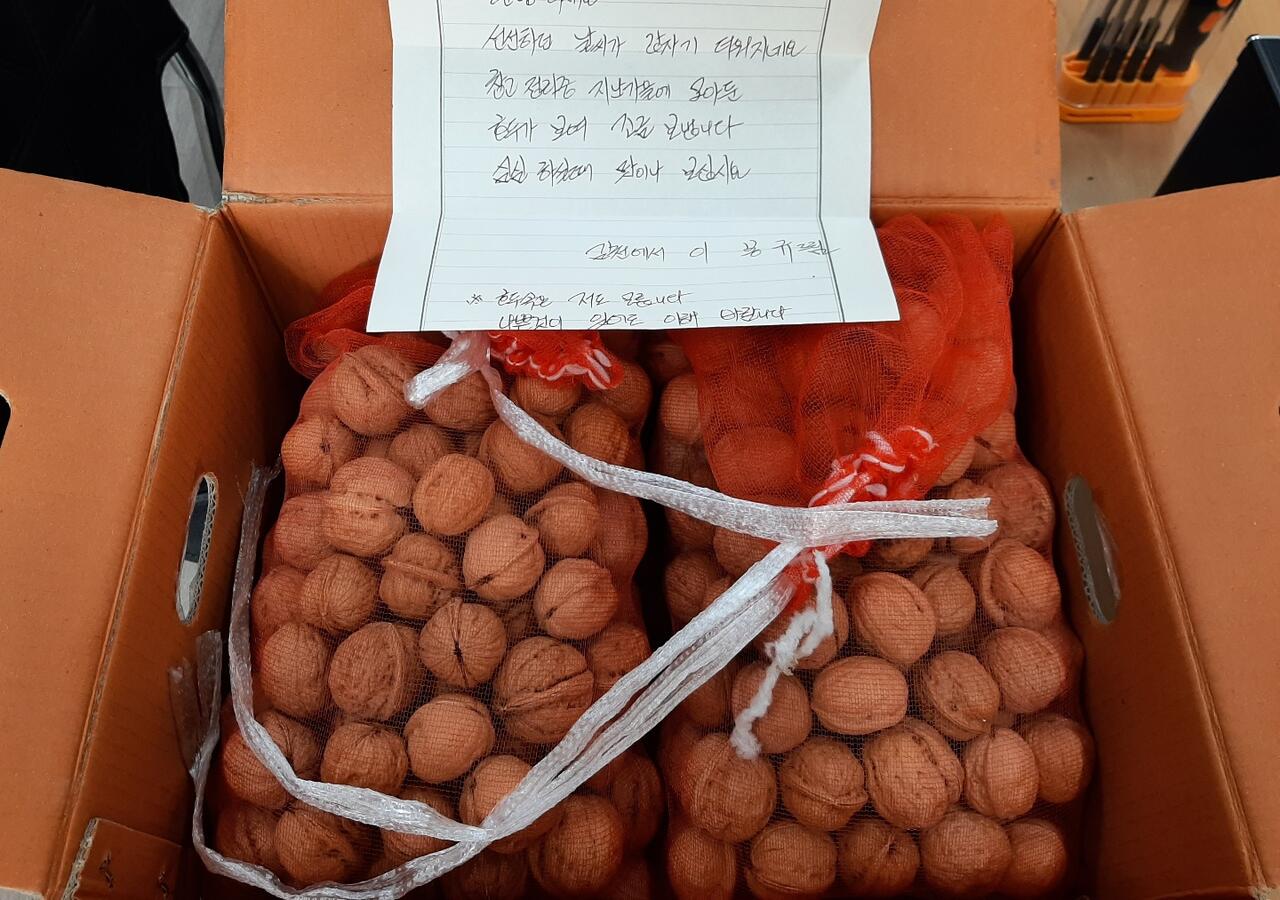 선선하던 날씨가 갑자기 더워지네요
창고 정리중 지난가을에 모아둔
호두가 보여 조금 보냅니다
심심 하실때 보십시요
김천에서 이 규드림
※ 호두속은 저도 모릅니다
나쁜것이 있어도 이해 바랍니다